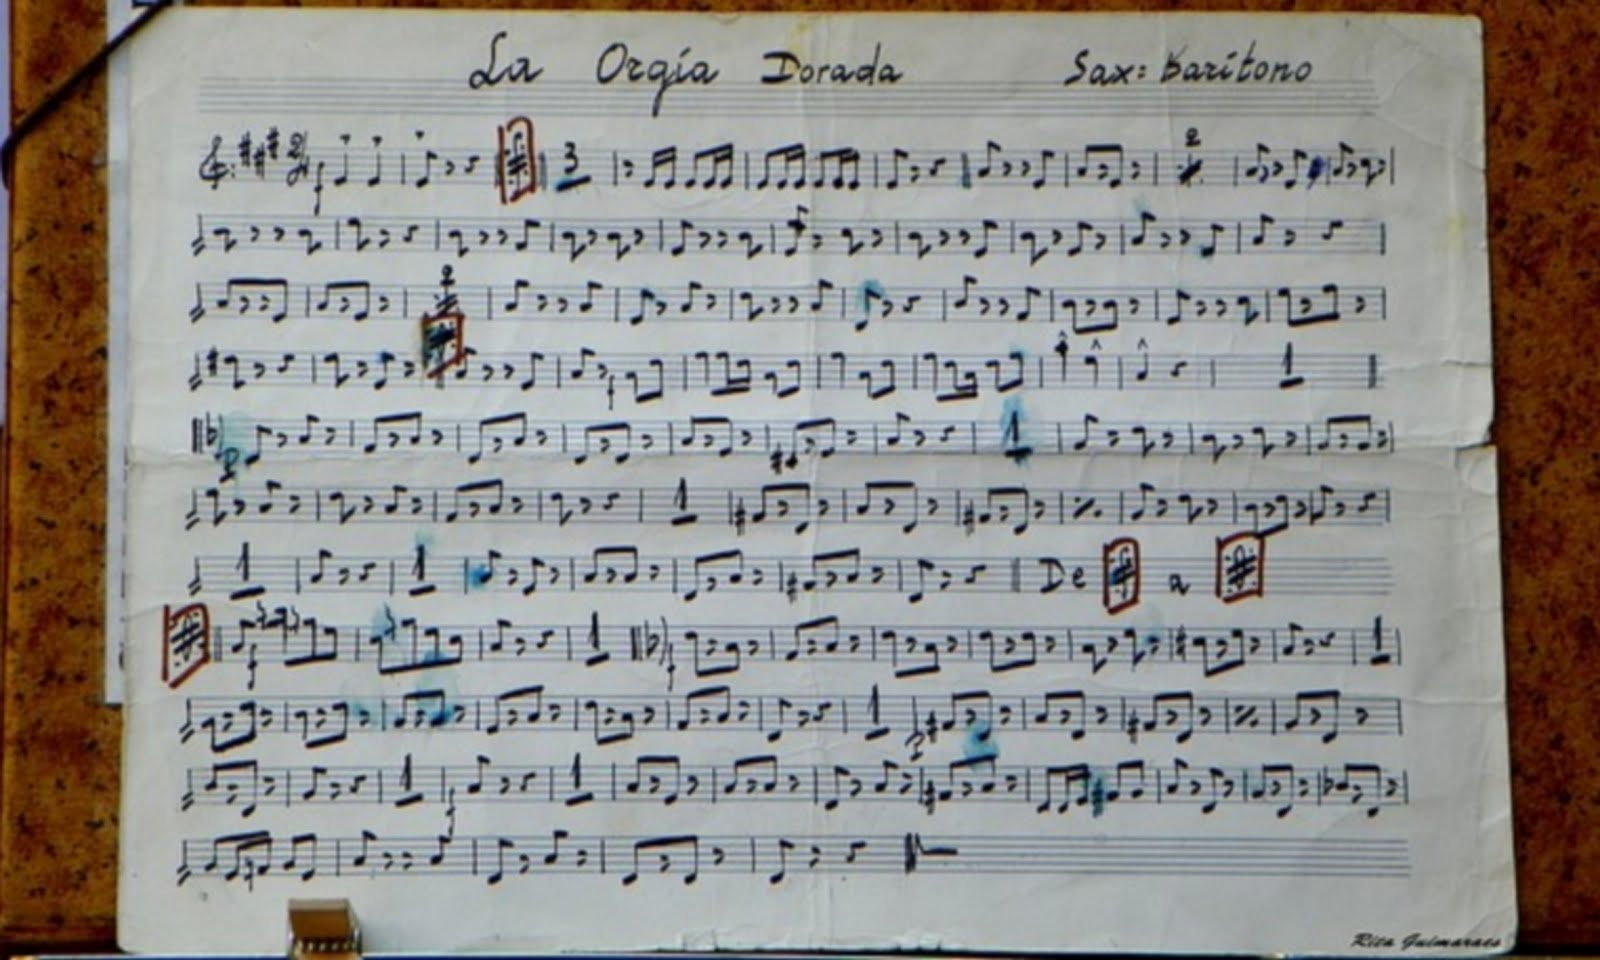 La Orgía Dorada Sax: Baritono
2/4
f
3
2
2
f
1
P
1
1
1 1 De a
f 1 f 1
1 P
1 f 1
Rita Guimaraes